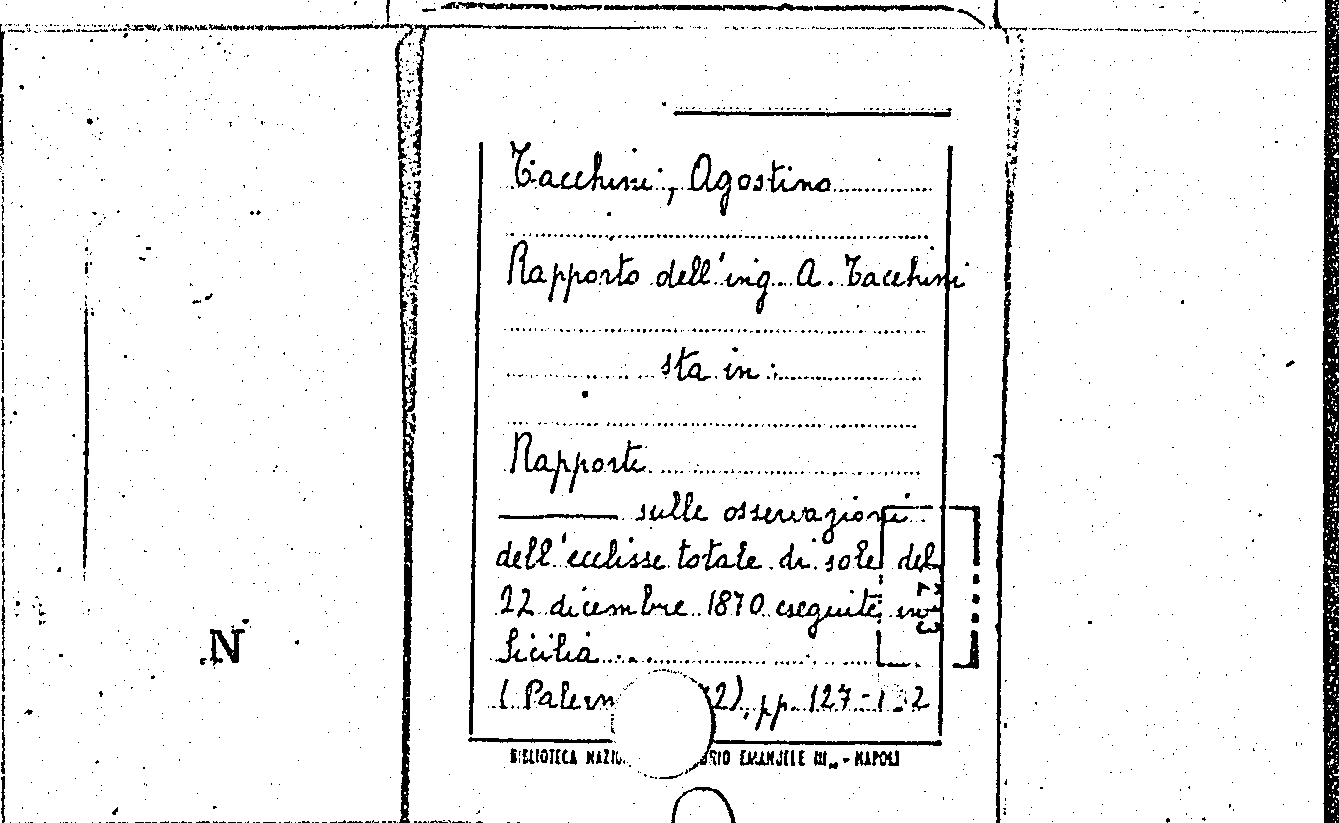 Tacchini, Agostino
Rapporto dell'ing. A. Tacchini
sta in:
Rapporti
sulle osservazioni
dell'ecclisse totale di sole del
22 dicembre 1870 eseguite in
Sicilia
(Palerm 2), pp. 127-1 2
BIBLIOTECA EMANUELE III - NAPOLI
N